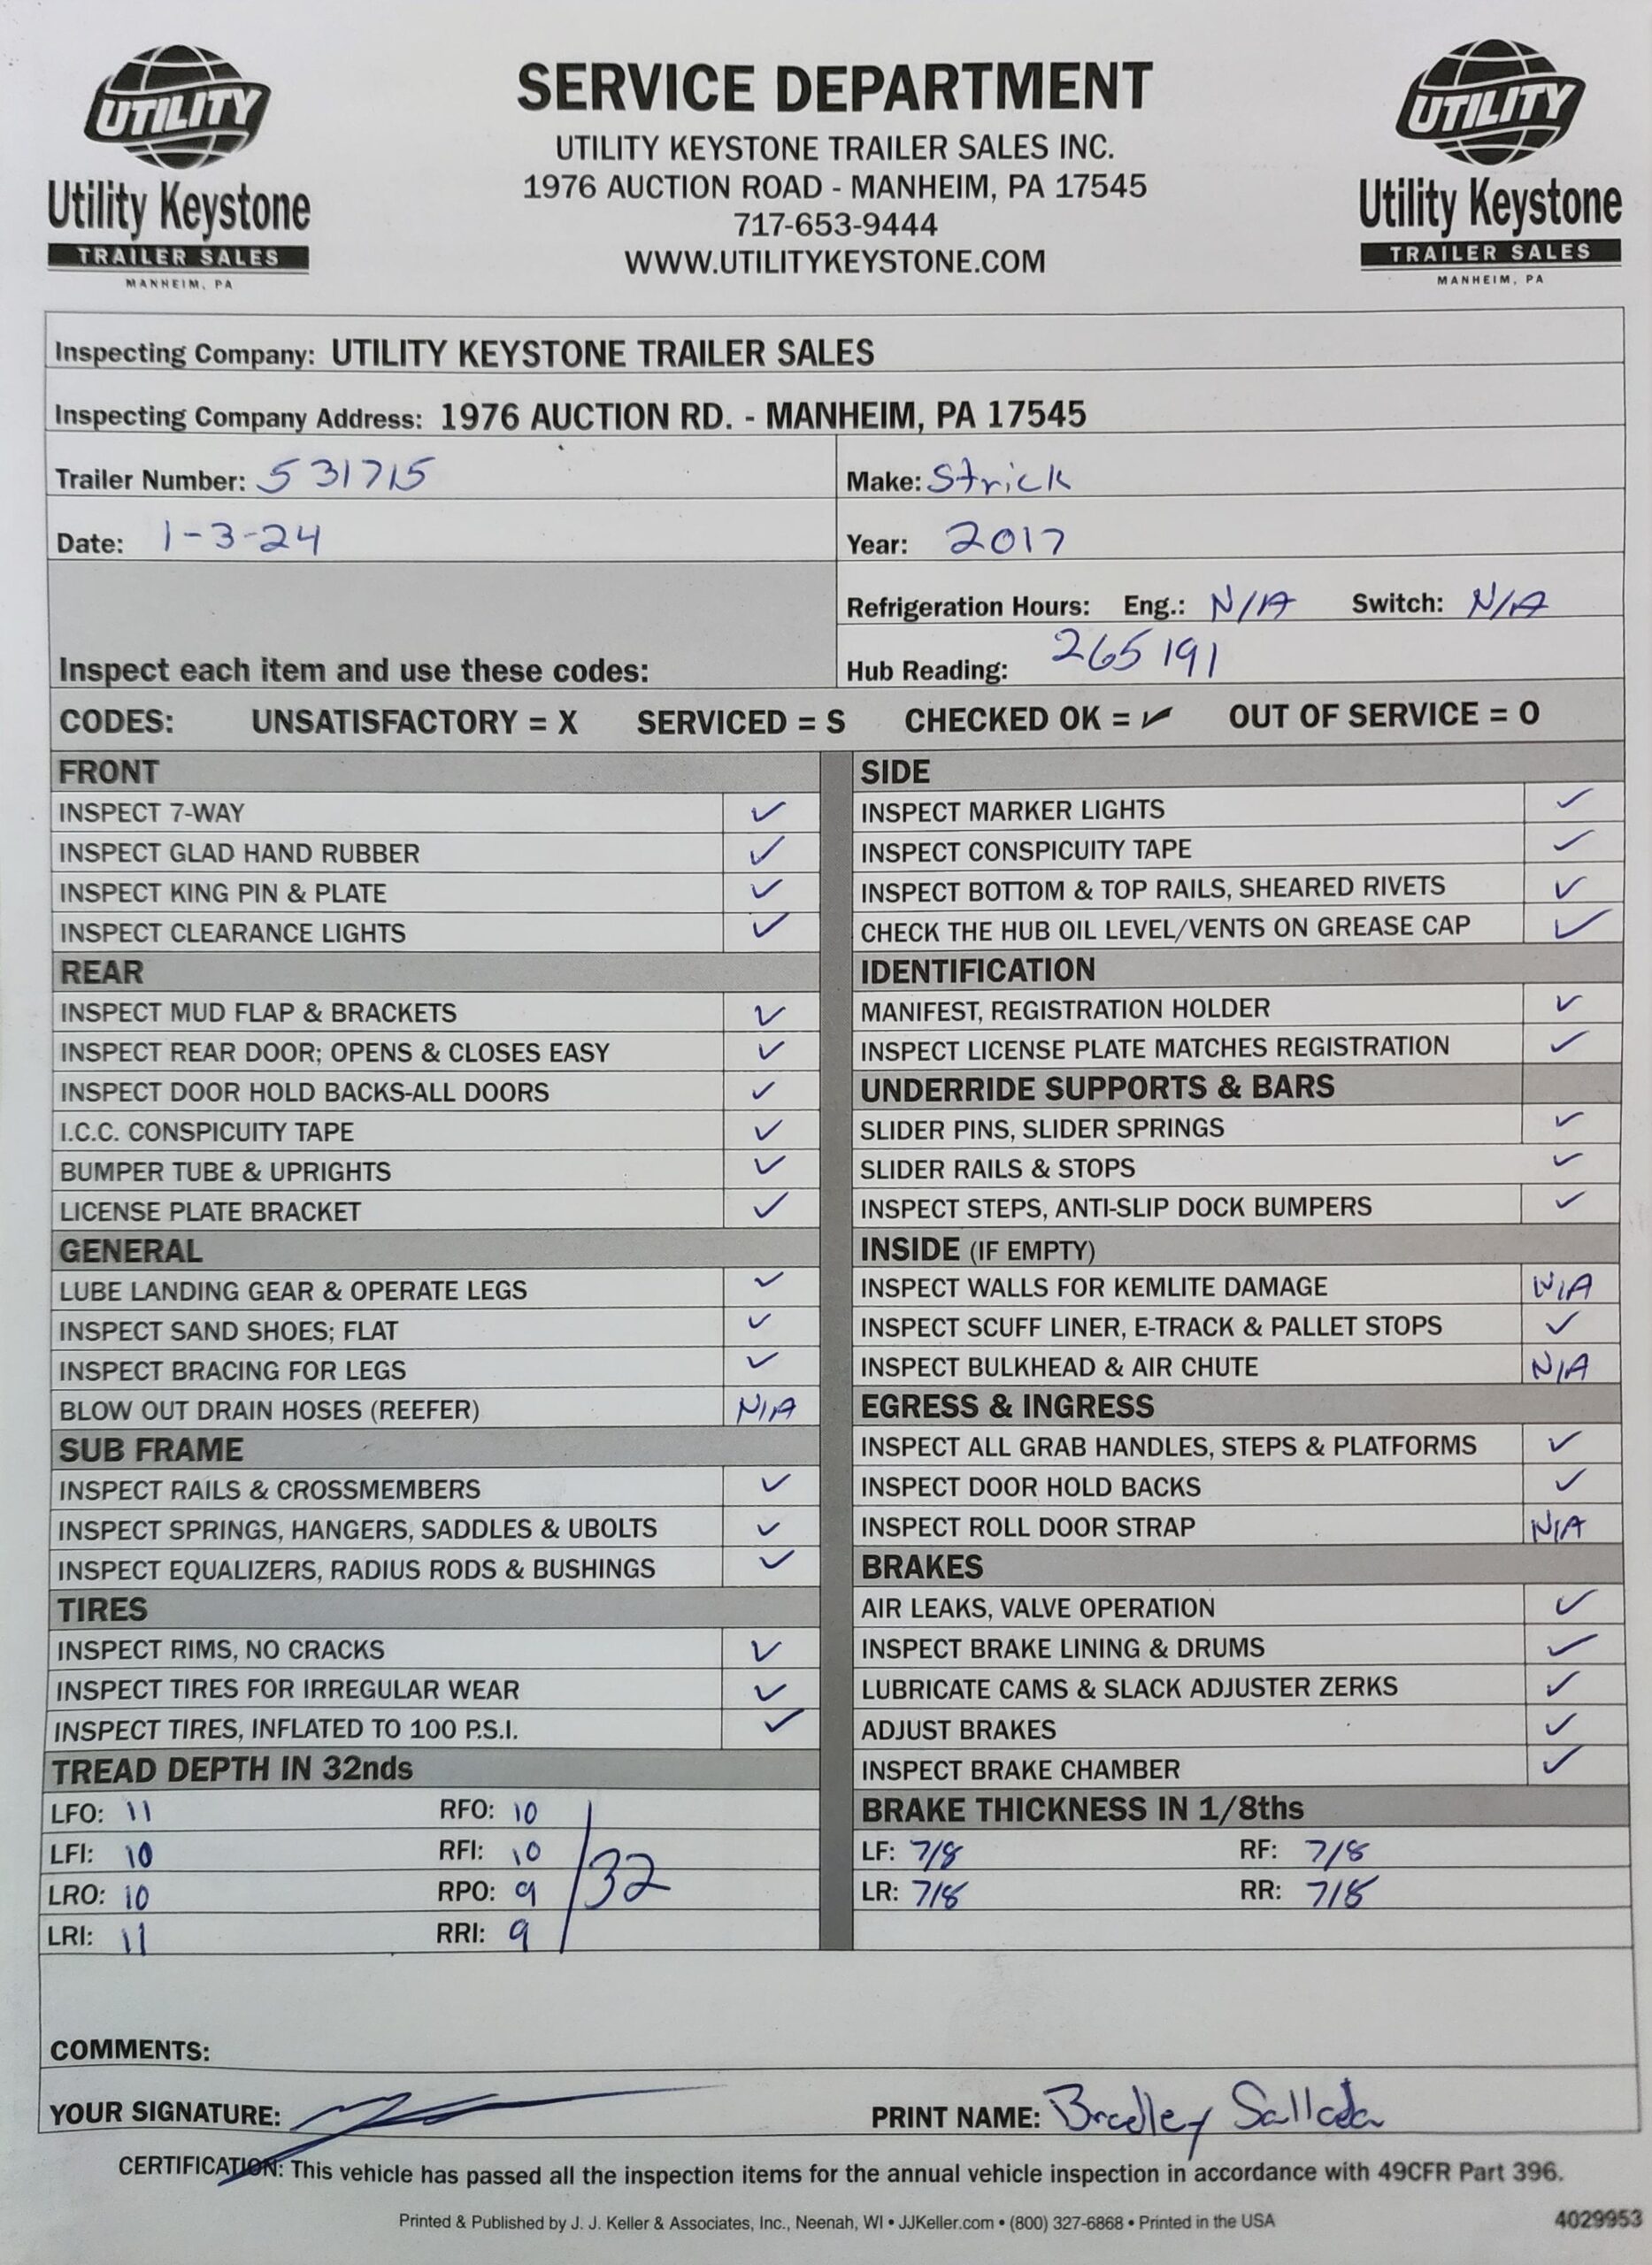 UTILITY
Utility Keystone
TRAILER SALES
MANHEIM, PA
SERVICE DEPARTMENT
UTILITY KEYSTONE TRAILER SALES INC.
1976 AUCTION ROAD - MANHEIM, PA 17545
717-653-9444
WWW.UTILITYKEYSTONE.COM
UTILITY
Utility Keystone
TRAILER SALES
MANHEIM, PA
Inspecting Company: UTILITY KEYSTONE TRAILER SALES
Inspecting Company Address: 1976 AUCTION RD. - MANHEIM, PA 17545
Trailer Number: 531715 Make: Strick
Date: 1-3-24 Year: 2017
Refrigeration Hours: Eng.: N/A Switch: N/A
Inspect each item and use these codes: Hub Reading: 265191
CODES: UNSATISFACTORY = X SERVICED = S CHECKED OK = ✓ OUT OF SERVICE = O
FRONT
INSPECT 7-WAY ✓
INSPECT GLAD HAND RUBBER ✓
INSPECT KING PIN & PLATE ✓
INSPECT CLEARANCE LIGHTS ✓
REAR
INSPECT MUD FLAP & BRACKETS ✓
INSPECT REAR DOOR; OPENS & CLOSES EASY ✓
INSPECT DOOR HOLD BACKS-ALL DOORS ✓
I.C.C. CONSPICUITY TAPE ✓
BUMPER TUBE & UPRIGHTS ✓
LICENSE PLATE BRACKET ✓
GENERAL
LUBE LANDING GEAR & OPERATE LEGS ✓
INSPECT SAND SHOES; FLAT ✓
INSPECT BRACING FOR LEGS ✓
BLOW OUT DRAIN HOSES (REEFER) N/A
SUB FRAME
INSPECT RAILS & CROSSMEMBERS ✓
INSPECT SPRINGS, HANGERS, SADDLES & UBOLTS ✓
INSPECT EQUALIZERS, RADIUS RODS & BUSHINGS ✓
TIRES
INSPECT RIMS, NO CRACKS ✓
INSPECT TIRES FOR IRREGULAR WEAR ✓
INSPECT TIRES, INFLATED TO 100 P.S.I. ✓
TREAD DEPTH IN 32nds
LFO: 11 RFO: 10
LFI: 10 RFI: 10
/32
LRO: 10 RPO: 9
LRI: 11 RRI: 9
SIDE
INSPECT MARKER LIGHTS ✓
INSPECT CONSPICUITY TAPE ✓
INSPECT BOTTOM & TOP RAILS, SHEARED RIVETS ✓
CHECK THE HUB OIL LEVEL/VENTS ON GREASE CAP ✓
IDENTIFICATION
MANIFEST, REGISTRATION HOLDER ✓
INSPECT LICENSE PLATE MATCHES REGISTRATION ✓
UNDERRIDE SUPPORTS & BARS
SLIDER PINS, SLIDER SPRINGS ✓
SLIDER RAILS & STOPS ✓
INSPECT STEPS, ANTI-SLIP DOCK BUMPERS ✓
INSIDE (IF EMPTY)
INSPECT WALLS FOR KEMLITE DAMAGE N/A
INSPECT SCUFF LINER, E-TRACK & PALLET STOPS ✓
INSPECT BULKHEAD & AIR CHUTE N/A
EGRESS & INGRESS
INSPECT ALL GRAB HANDLES, STEPS & PLATFORMS ✓
INSPECT DOOR HOLD BACKS ✓
INSPECT ROLL DOOR STRAP N/A
BRAKES
AIR LEAKS, VALVE OPERATION ✓
INSPECT BRAKE LINING & DRUMS ✓
LUBRICATE CAMS & SLACK ADJUSTER ZERKS ✓
ADJUST BRAKES ✓
INSPECT BRAKE CHAMBER ✓
BRAKE THICKNESS IN 1/8ths
LF: 7/8 RF: 7/8
LR: 7/8 RR: 7/8
COMMENTS:
YOUR SIGNATURE: PRINT NAME: Bradley Sallada
CERTIFICATION: This vehicle has passed all the inspection items for the annual vehicle inspection in accordance with 49CFR Part 396.
Printed & Published by J. J. Keller & Associates, Inc., Neenah, WI • JJKeller.com • (800) 327-6868 • Printed in the USA 4029953